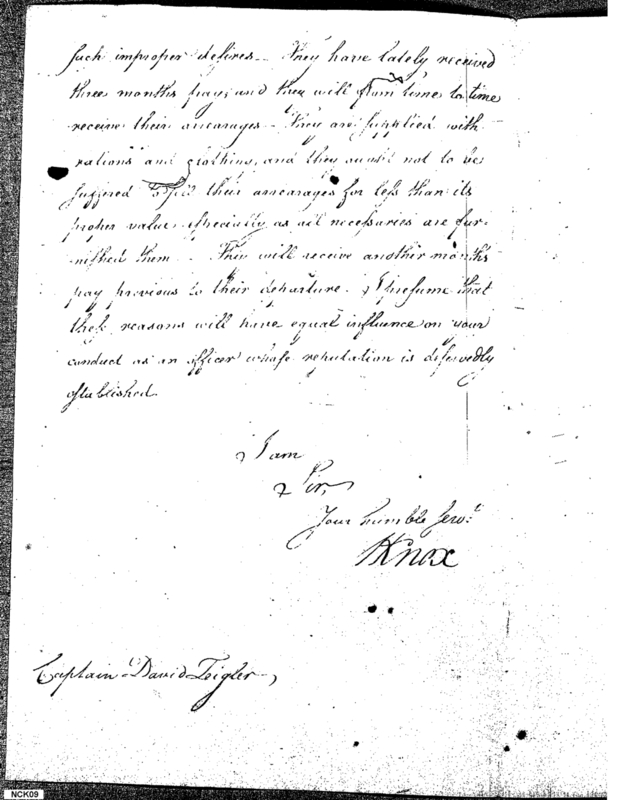 such improper desires — They have lately received
three months pay, and they will from time to time
receive their arrearages — They are supplied with
rations and clothing, and they ought not to be
suffered to sell their arrearages for less than its
proper value, especially as all necessaries are fur-
nished them — They will receive another months
pay previous to their departure. I presume that
these reasons will have equal influence on your
conduct as an officer whose reputation is deservedly
established.
I am
Sir,
Your humble Servt.
HKnox
Captain David Zeigler
NCK09